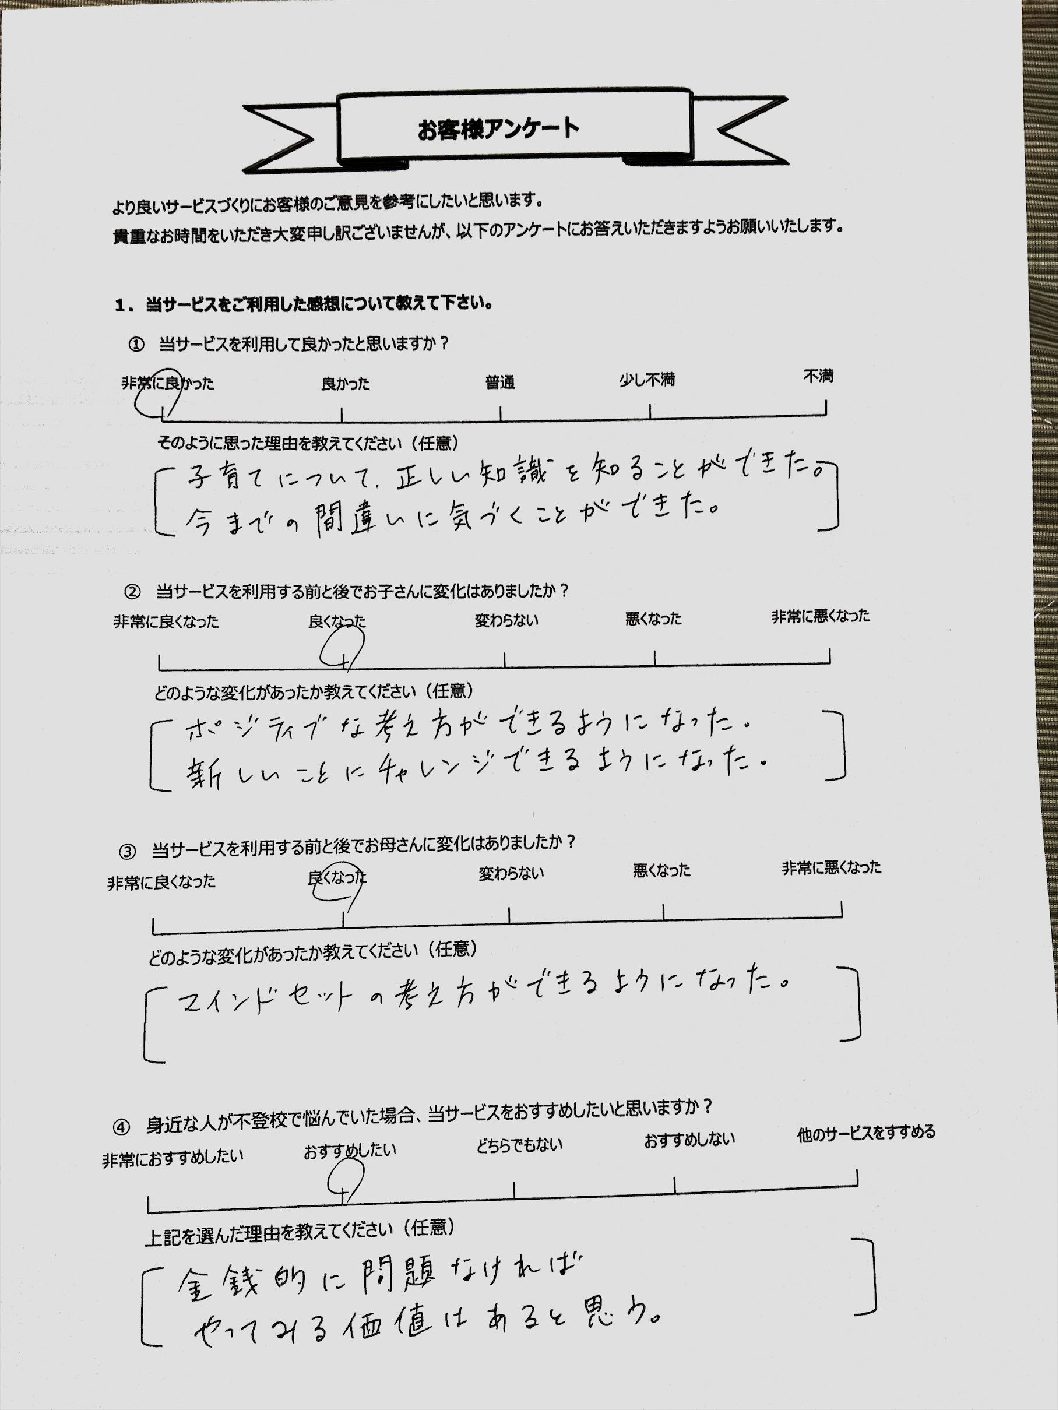 お客様アンケート
より良いサービスづくりにお客様のご意見を参考にしたいと思います。
貴重なお時間をいただき大変申し訳ございませんが、以下のアンケートにお答えいただきますようお願いいたします。
1. 当サービスをご利用した感想について教えて下さい。
① 当サービスを利用して良かったと思いますか？
非常に良かった 良かった 普通 少し不満 不満
そのように思った理由を教えてください（任意）
子育てについて、正しい知識を知ることができた。
今までの間違いに気づくことができた。
② 当サービスを利用する前と後でお子さんに変化はありましたか？
非常に良くなった 良くなった 変わらない 悪くなった 非常に悪くなった
どのような変化があったか教えてください（任意）
ポジティブな考え方ができるようになった。
新しいことにチャレンジできるようになった。
③ 当サービスを利用する前と後でお母さんに変化はありましたか？
非常に良くなった 良くなった 変わらない 悪くなった 非常に悪くなった
どのような変化があったか教えてください（任意）
マインドセットの考え方ができるようになった。
④ 身近な人が不登校で悩んでいた場合、当サービスをおすすめしたいと思いますか？
非常におすすめしたい おすすめしたい どちらでもない おすすめしない 他のサービスをすすめる
上記を選んだ理由を教えてください（任意）
金銭的に問題なければ
やってみる価値はあると思う。